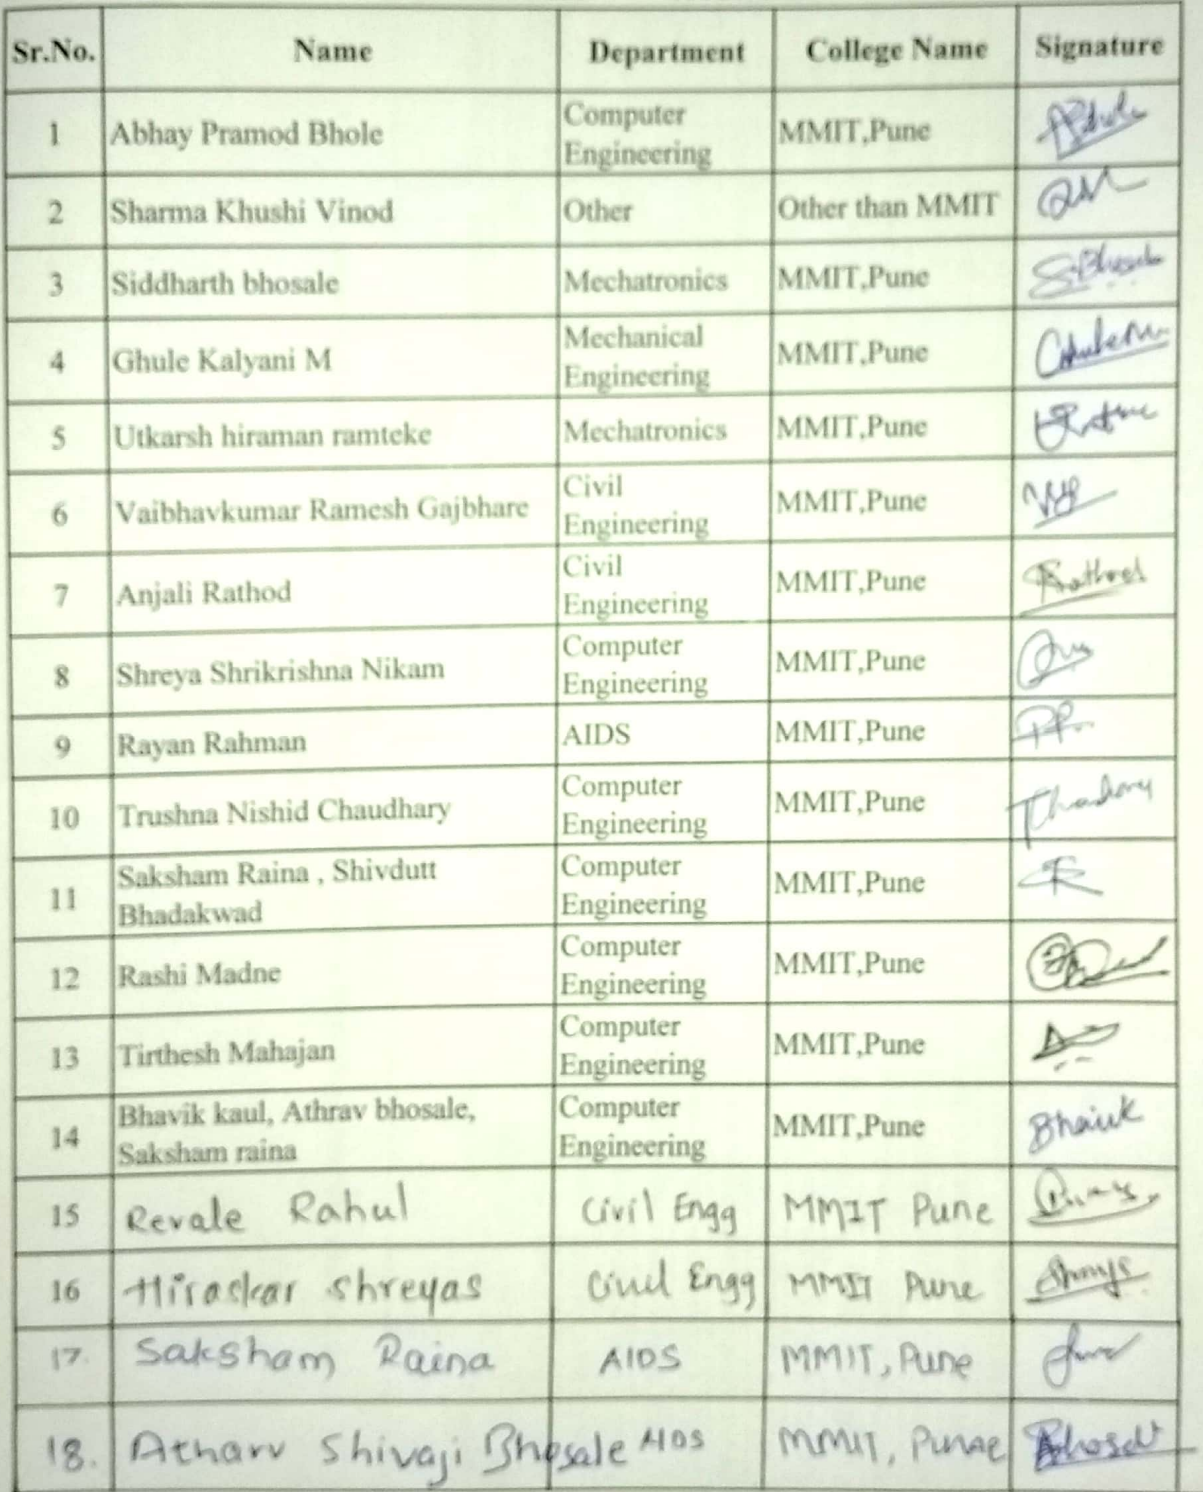 Sr.No. Name Department College Name Signature
1 Abhay Pramod Bhole Computer Engineering MMIT,Pune
2 Sharma Khushi Vinod Other Other than MMIT
3 Siddharth bhosale Mechatronics MMIT,Pune S.Bhosale
4 Ghule Kalyani M Mechanical Engineering MMIT,Pune
5 Utkarsh hiraman ramteke Mechatronics MMIT,Pune
6 Vaibhavkumar Ramesh Gajbhare Civil Engineering MMIT,Pune
7 Anjali Rathod Civil Engineering MMIT,Pune
8 Shreya Shrikrishna Nikam Computer Engineering MMIT,Pune
9 Rayan Rahman AIDS MMIT,Pune
10 Trushna Nishid Chaudhary Computer Engineering MMIT,Pune
11 Saksham Raina , Shivdutt Bhadakwad Computer Engineering MMIT,Pune
12 Rashi Madne Computer Engineering MMIT,Pune
13 Tirthesh Mahajan Computer Engineering MMIT,Pune
14 Bhavik kaul, Athrav bhosale, Saksham raina Computer Engineering MMIT,Pune
15 Revale Rahul Civil Engg MMIT Pune
16 Hiraskar Shreyas Civil Engg MMIT Pune
17. Saksham Raina AIDS MMIT, Pune
18. Atharv Shivaji Bhosale AIDS MMIT, Punae